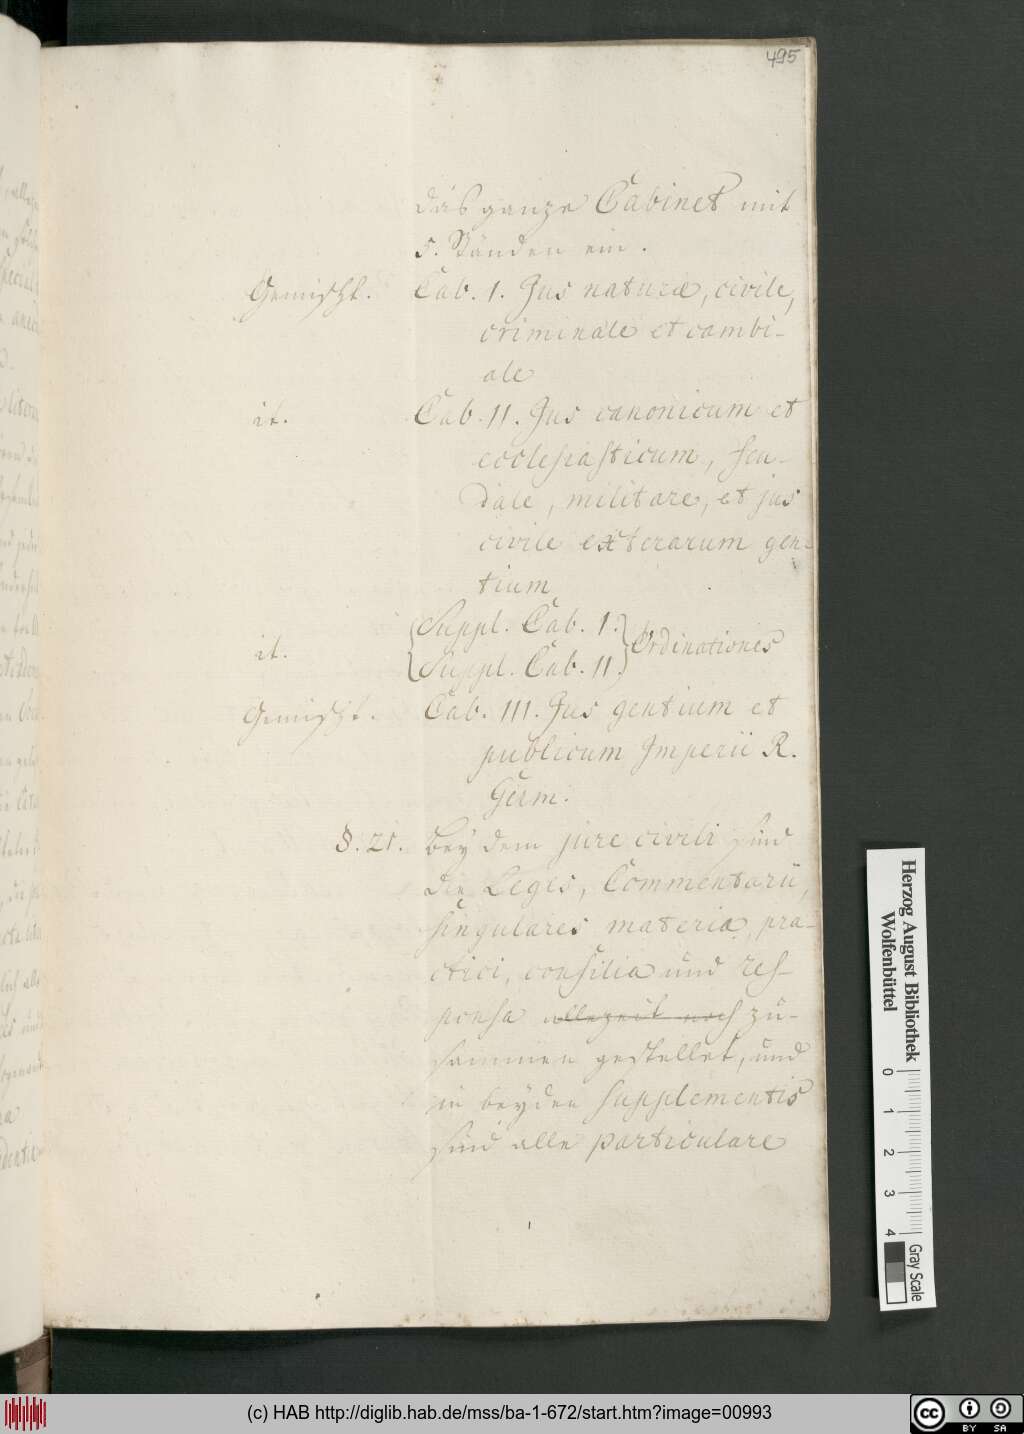 495
das ganze Cabinet mit
5. Ständen ein.
Gemischt. Cab. I. Jus naturæ, civile,
criminale et cambi-
ale
it. Cab. II. Jus canonicum et
ecclesiasticum, feu-
dale, militare, et jus
civile exterarum gen-
tium
Suppl. Cab. I.
it. Ordinationes
Suppl. Cab. II.
Gemischt. Cab. III. Jus gentium et
publicum Imperii R.
Germ.
§. 21. Bey dem jure civili sind
die Leges, Commentarii,
singulares materiæ, pra-
ctici, consilia und res-
ponsa allezeit noch zu-
sammen gestellet, und
in beyden supplementis
sind alle particulare
Herzog August Bibliothek
Wolfenbüttel
0 1 2 3 4
Gray Scale
(c) HAB http://diglib.hab.de/mss/ba-1-672/start.htm?image=00993
cc BY SA